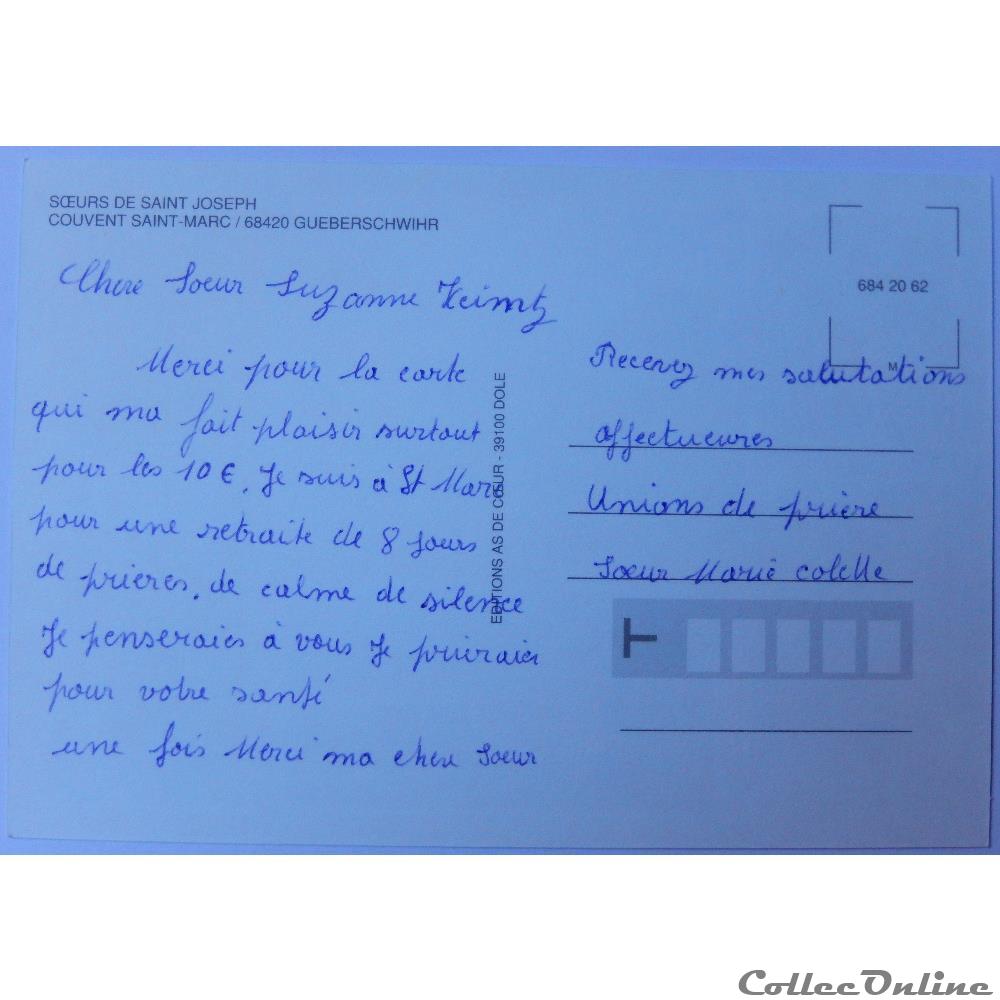 SŒURS DE SAINT JOSEPH
COUVENT SAINT-MARC / 68420 GUEBERSCHWIHR
684 20 62
M
Chere Soeur Suzanne Heimtz
Merci pour la carte
qui ma fait plaisir surtout
pour les 10 €. Je suis à St Marc
pour une retraite de 8 jours
de prieres. de calme de silence
Je penseraies à vous Je prieraies
pour votre santé
une fois Merci ma chere Soeur
EDITIONS AS DE CŒUR - 39100 DOLE
Recevez mes salutations
affectueures
Unions de prière
Soeur Marie colette
CollecOnline